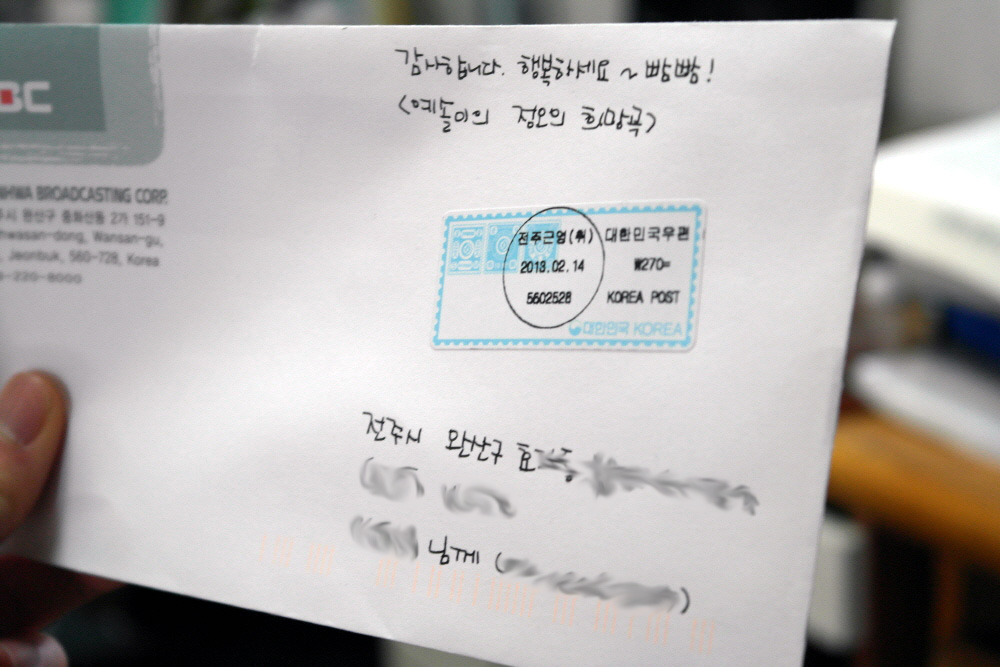 감사합니다. 행복하세요 ~ 빰빰!
<예솔이의 정오의 희망곡>
BC
HWA BROADCASTING CORP.
시 완산구 중화산동 2가 151-9
hwasan-dong, Wansan-gu,
, Jeonbuk, 560-728, Korea
-220-8000
전주근영(취) 대한민국우편
2013.02.14 ₩270=
5602528 KOREA POST
대한민국 KOREA
전주시 완산구 효
님께 ( )